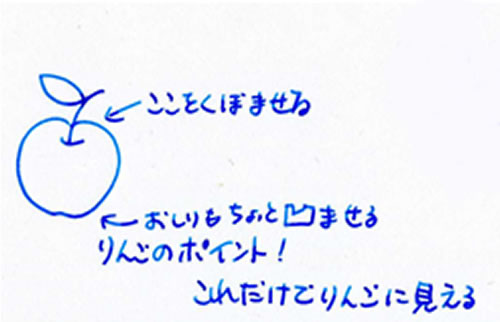 ここをくぼませる
おしりもちょっと凹ませる
りんごのポイント!
これだけでりんごに見える